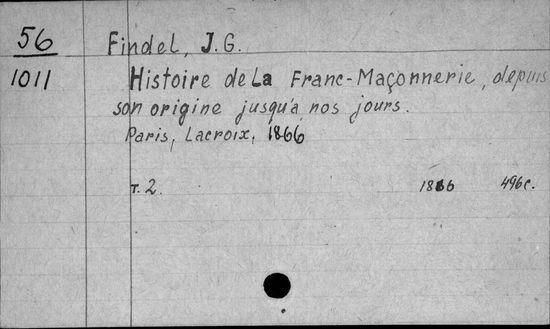 56 Findel, J.G.
1011 Histoire de La Franc-Maçonnerie, depuis
son origine jusqu'a nos jours.
Paris, Lacroix, 1866
T. 2. 1866 496c.